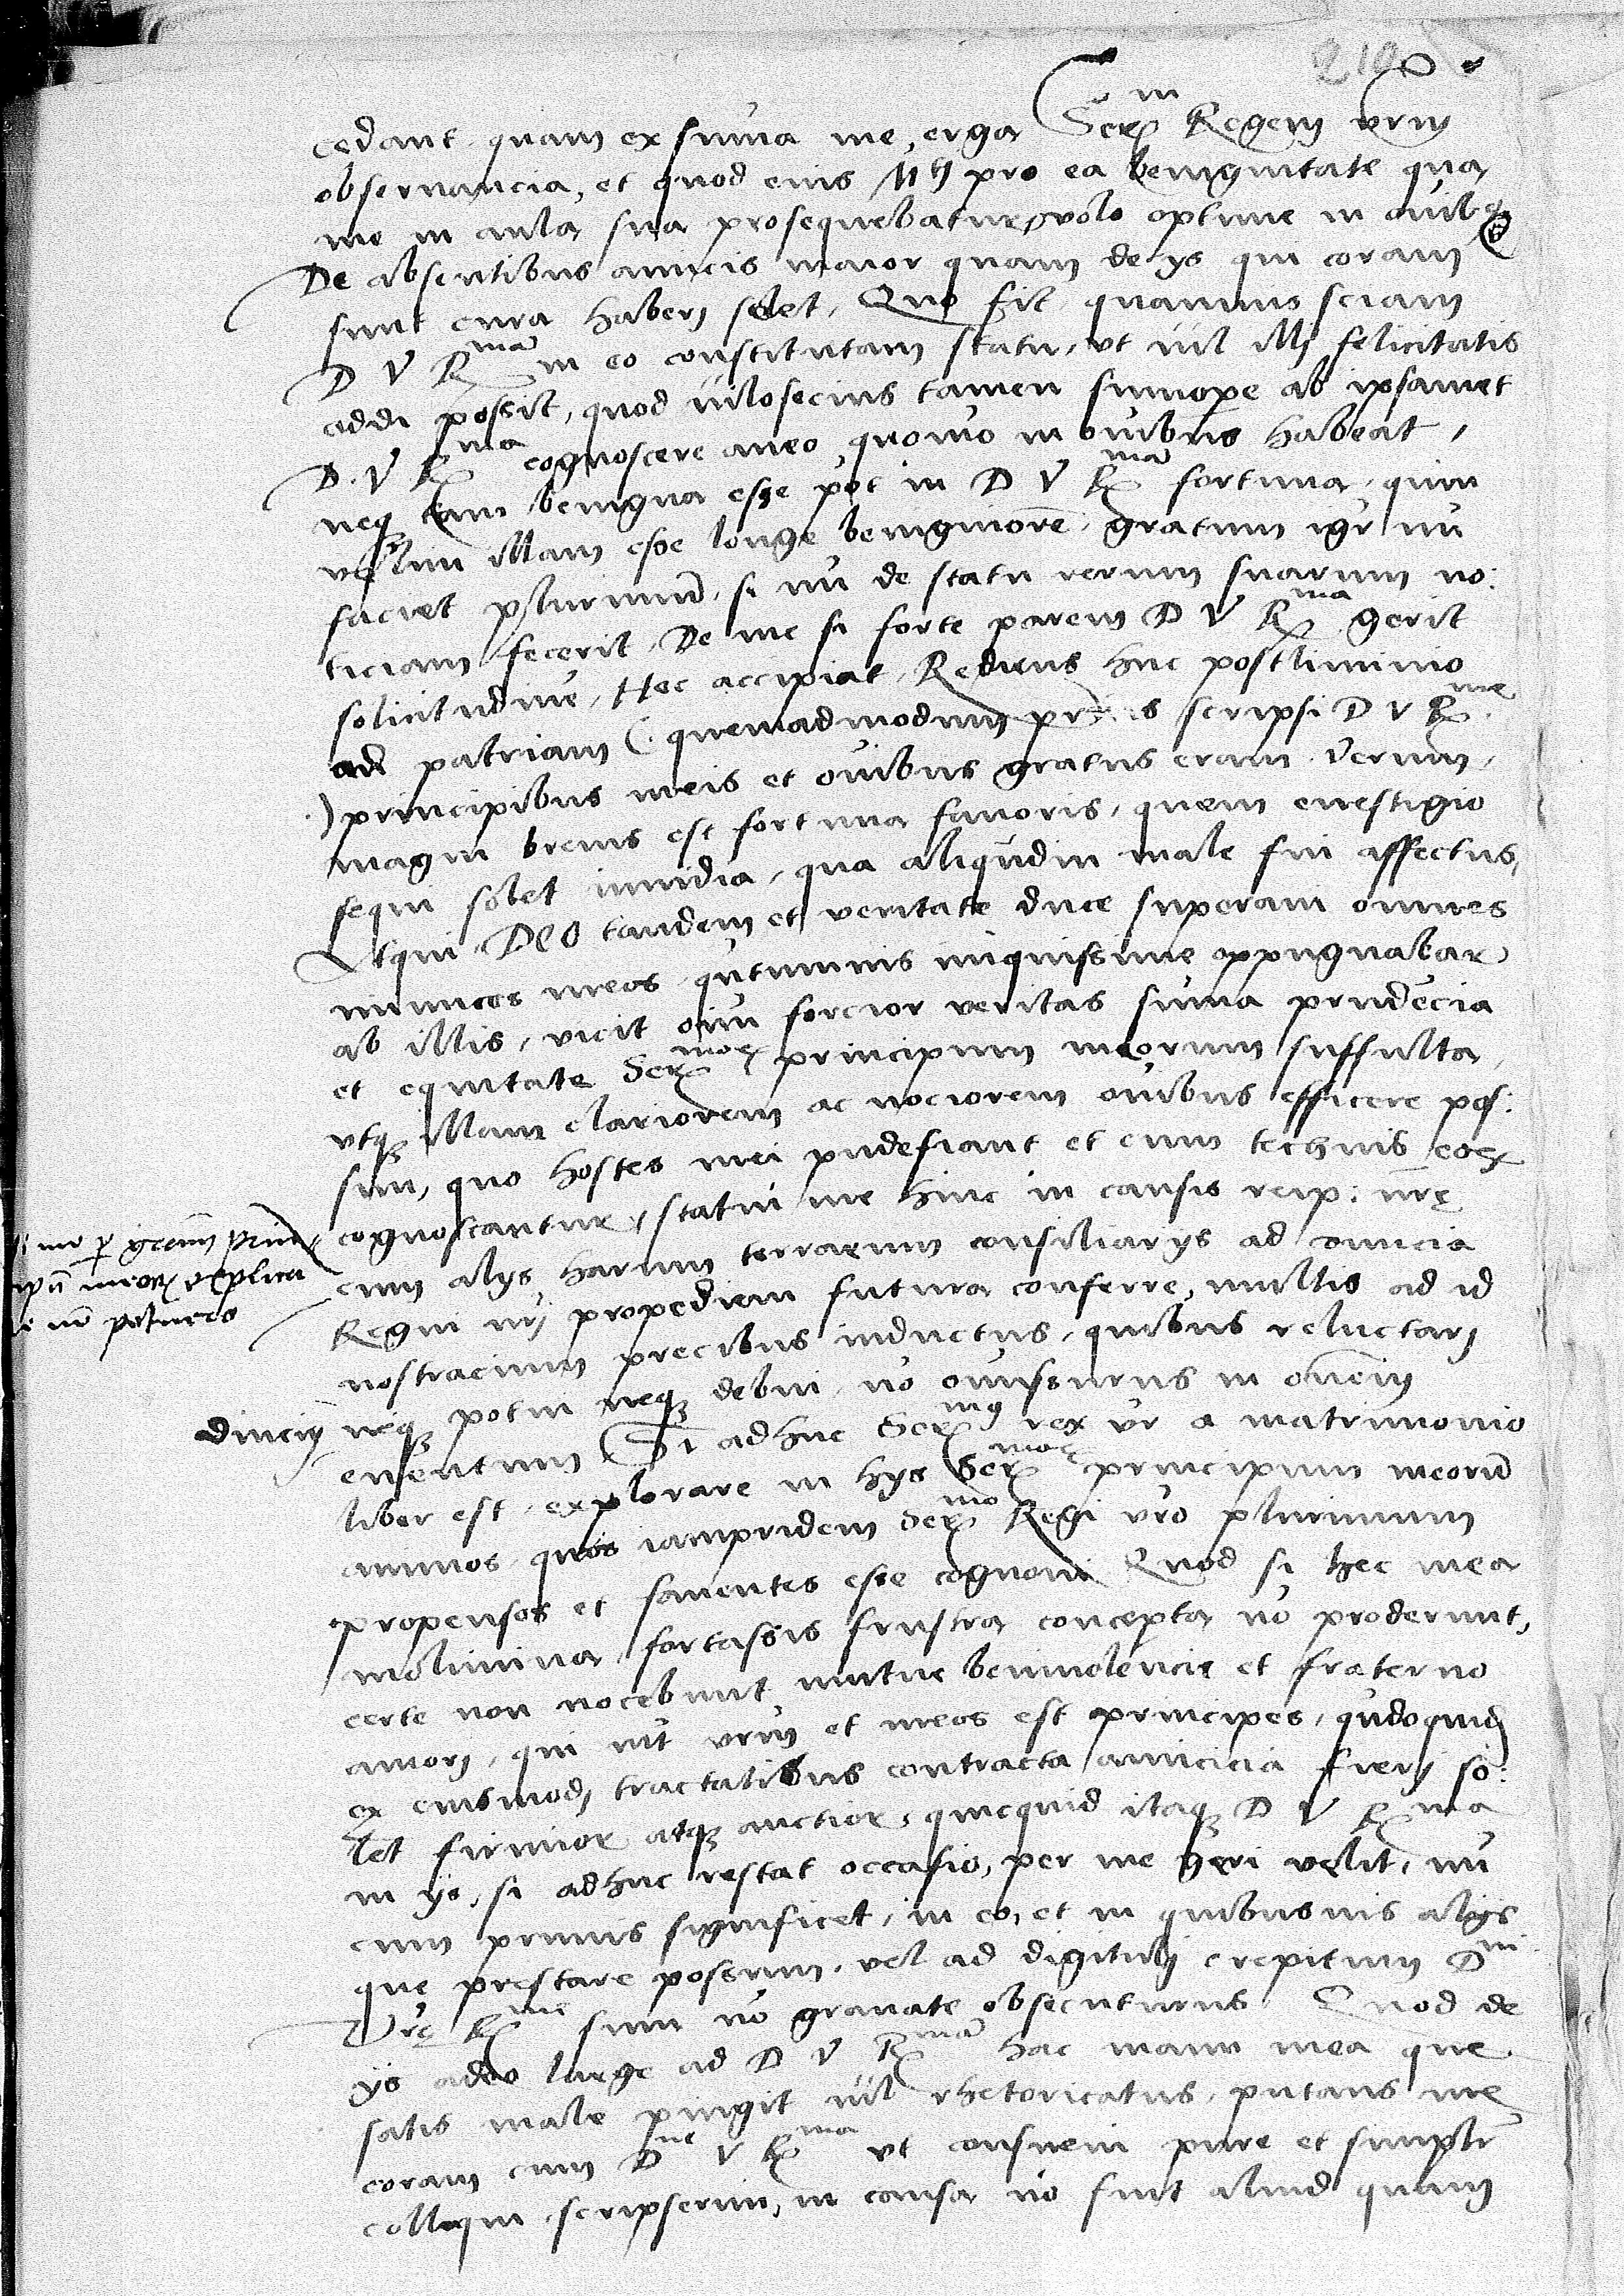 210
cedant, quam ex su̅ma me erga Ser^m Regem vr̅m
observancia, et quod eius M^tj pro ea benignitate qua
me in aula sua prosequebatur, volo optime in o̅nib9
De absentibus amicis maior quam de ijs qui coram
sunt cura haberj solet, Quo fit, quamuis sciam
D V R^mam in eo constitutam statu, vt nil illj felicitatis
addi possit, quod nilosecius tamen sum̅ope ab ipsamet
D. V R^ma cognoscere aueo, quo̅mo in o̅nibus habeat,
neq3 tam benigna esse po̅t in D V R^mam fortuna, quin
velim illam esse longe benignore̅, gratum igr̅ mi̅
faciet plurimu̅, si mi̅ de statu rerum suarum no:
ticiam fecerit, De me si forte parem D V R^ma gerit
solicitudine̅, Hec accipiat, Rediens huc postliminio
ad patriam (: quemadmodum prius scripsi D V R^me
:) principibus meis et o̅nibus gratus eram, Verum,
magni breuis est fortuna fauoris, quem evestigio
sequi solet inuidia, qua aliqu̅din male fui affectus,
Atqui DEO tandem et veritate duce superaui omnes
inimicos meos, qu̅tumuis iniquissime oppugnabar
ab illis, vicit o̅im forcior veritas su̅ma prude̅cia
et equitate Ser^mor principum meorum suffulta,
vtq3 illam clariorem ac nociorem o̅nibus efficere pos:
sim, quo hostes mei pudefiant et cum technis eor
cognoscantur, statui me hinc in causis reip: nr̅e
cum alijs harum terrarum consiliarijs ad comicia
Regni mj propediem futura conferre, multis ad id
nostracium precibus inductus, quibus reluctarj
neq3 potui neq3 debui, no̅ o̅missurus in o̅nem
euentum Si adhuc Ser^mus rex vr̅ a matrimonio
liber est, explorare in hijs Ser^mor principum meoru̅
animos, quos iampridem Ser^mo Regi vr̅o plurimum
propensos et fauentes esse cognoui Quod si hec mea
molimina, fortassis frustra concepta no̅ proderunt,
certe non nocebunt mutue beniuolencie et fraterno
amorj, qui int̅ vr̅m et meos est principes, qu̅doquidem
ex eiusmodj tractatibus contracta amicicia fierj so:
let firmior atq3 auctior, quicquid itaq3 D V R^ma
in ijs, si adhuc restat occasio, per me geri velit, mi̅
cum primis significet, in eo, et in quibusuis alijs
que prestare possum, vel ad digitulj crepitum D^ni
Vr̅e R^me sum no̅ grauate obsecuturus. Quod de
ijs adeo large ad D V R^mam hac manu mea que
satis male pingit nil rhetoricatus, putans me
coram cum D^ne V R^ma vt consueui pure et simplr̅
colloqui, scripserim, in causa no̅ fuit aliud quam
mi̅ p gr̅am prin
cipu̅ meor explica
ducem